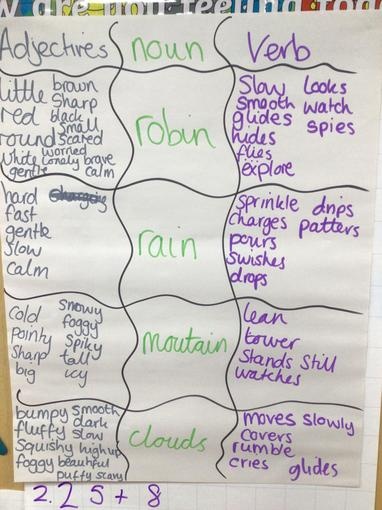 Adjectives noun Verb
little brown
red sharp
round black
white small
gentle scared
worried
lonely brave
calm
robin
Slow Looks
smooth watch
glides spies
hides
flies
explore
hard
fast
gentle
slow
calm
rain
sprinkle drips
charges patters
pours
swishes
drops
cold snowy
pointy foggy
sharp spiky
big tall
icy
moutain
lean
tower
stands still
watches
bumpy smooth
fluffy dark
squishy slow
foggy high up
beautiful
puffy scary
clouds
moves slowly
covers
rumble
cries glides
2. 2 5 + 8